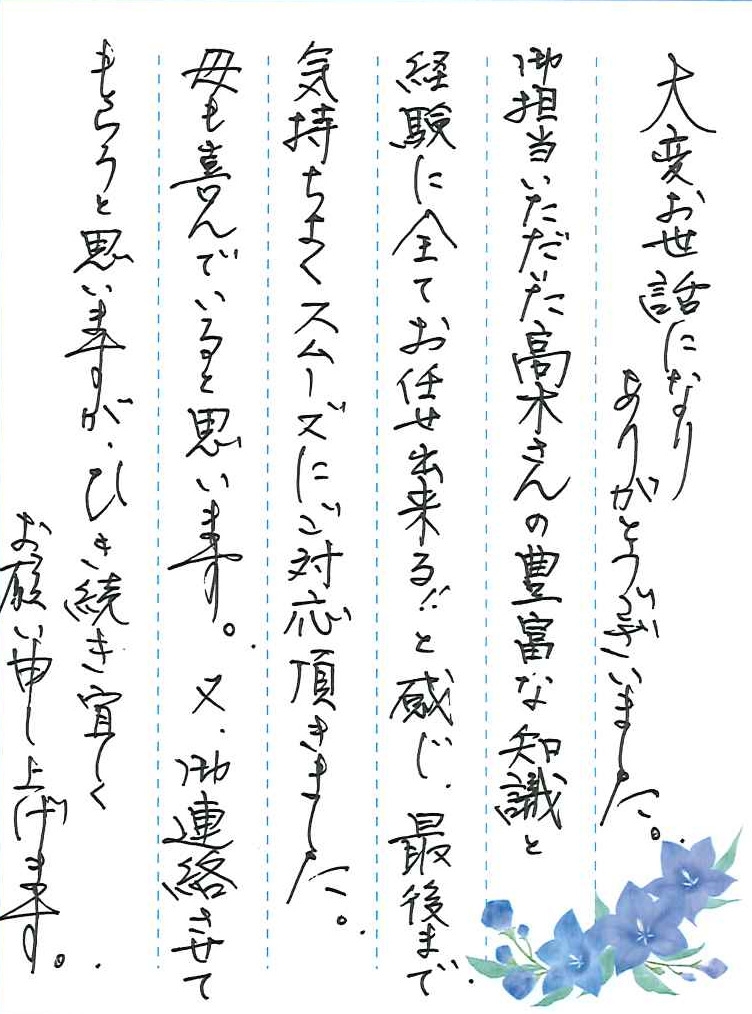 大変お世話になり
ありがとうございました。
御担当いただだた高木さんの豊富な知識と
経験に全てお任せ出来る!!と感じ、最後まで、
気持ちよくスムーズにご対応頂きました。
母も喜んでいると思います。又、御連絡させて
もらうと思いますが、ひき続き宜しく
お願い申し上げます。